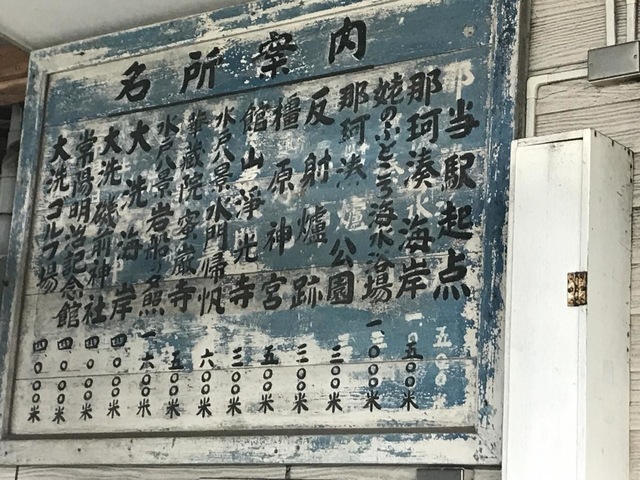 名所案内
当駅起点
那珂湊海岸 一、五〇〇米
姥のふところ海水浴場 一、〇〇〇米
那珂湊公園 三〇〇米
反射爐跡 三〇〇米
橿原神宮 五〇〇米
館山淨光寺 三〇〇米
水戸八景水門帰帆 六〇〇米
華蔵院密巌寺 五〇〇米
水戸八景岩船夕照 一、六〇〇米
大洗海岸 四、〇〇〇米
大洗磯前神社 四、〇〇〇米
常陽明治記念館 四、〇〇〇米
大洗ゴルフ場 四、〇〇〇米